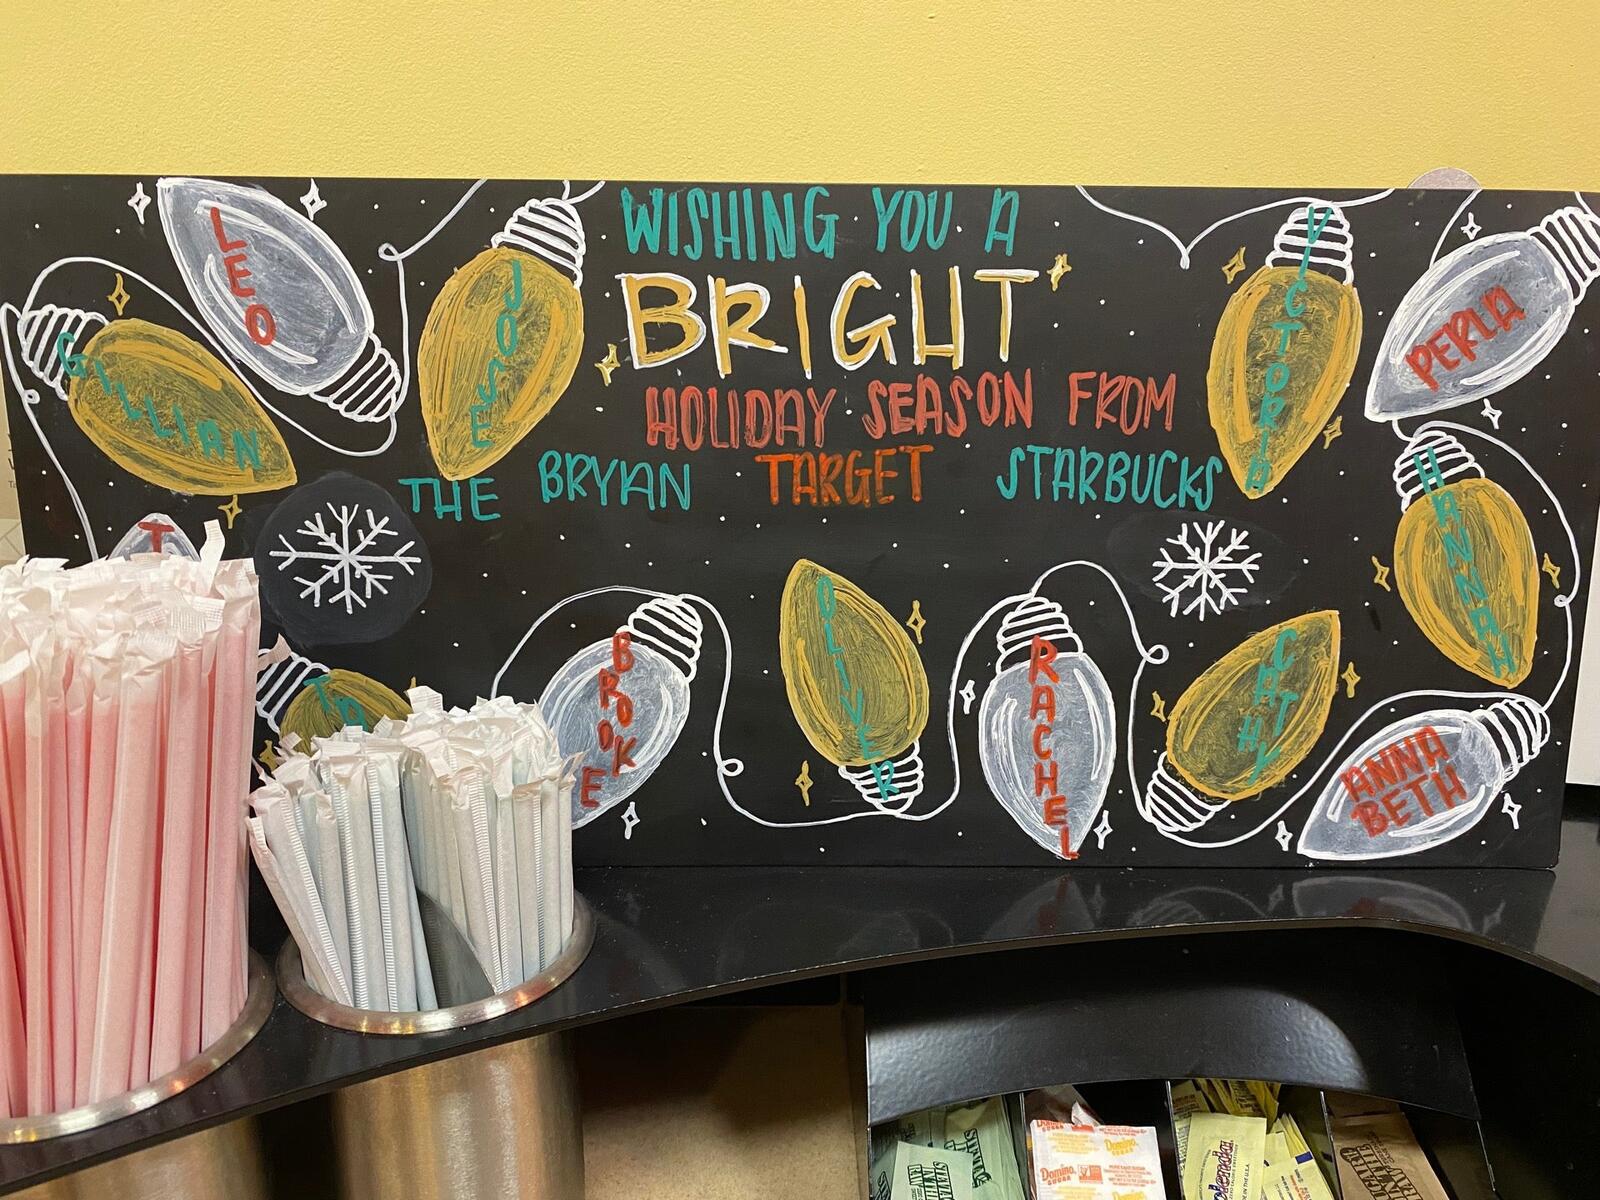 WISHING YOU A
BRIGHT
HOLIDAY SEASON FROM
THE BRYAN TARGET STARBUCKS
LEO
GILLIAN
JOSE
VICTORIA
PERLA
HANNAH
BROOKE
OLIVER
RACHEL
CATHY
ANNA
BETH
Domino
Domino